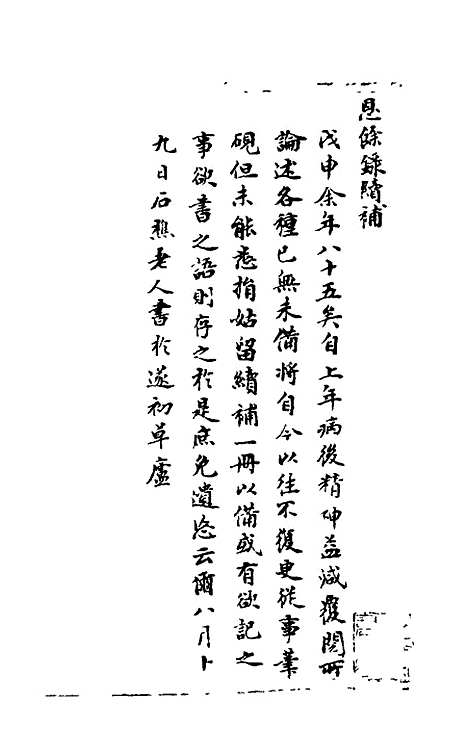 思餘錄續補
戊申余年八十五矣自上年病後精神益減覆閱所
論述各種已無未備將自今以往不復更從事筆
硯但未能恝捐姑留續補一冊以備或有欲記之
事欲書之語則存之於是庶免遺恨云爾八月卜
九日石樵老人書於遂初草廬